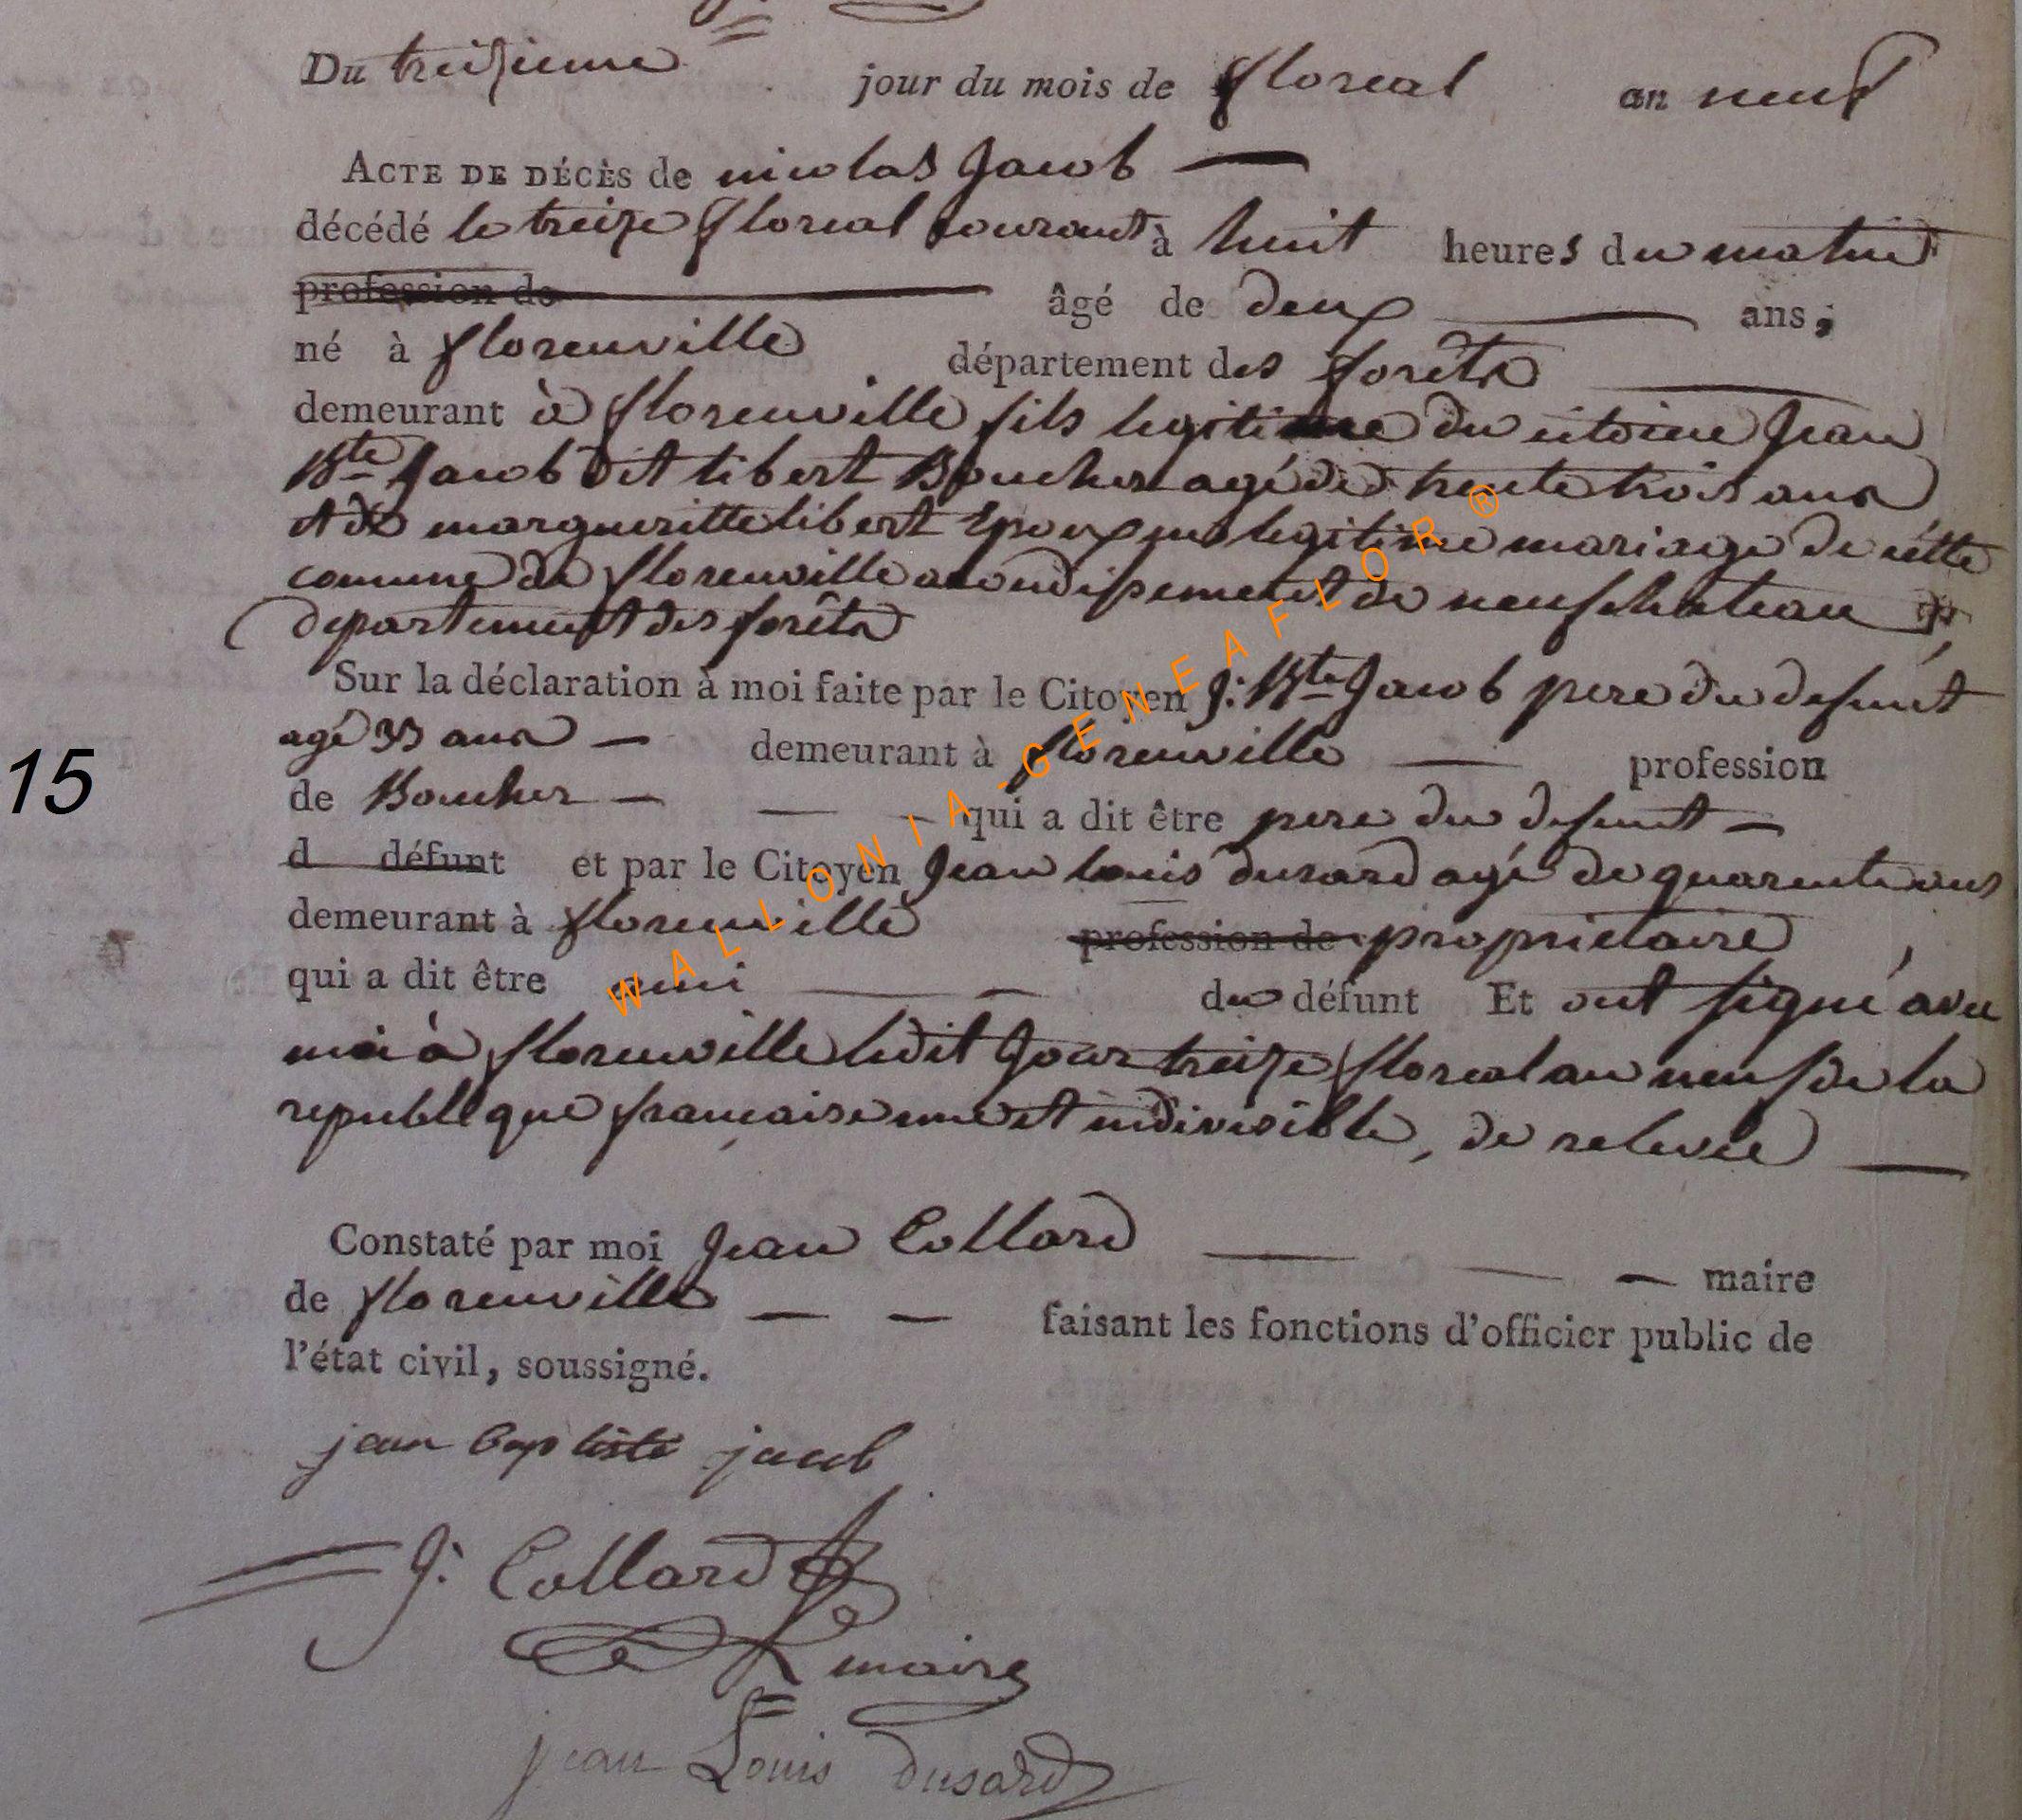 Du treizieme jour du mois de floreal an neuf
ACTE DE DÉCÈS de nicolas Jacob
décédé le treize floreal courant à huit heures du matin
profession de âgé de deux ans,
né à florenville département des forêts
demeurant à florenville fils legitime du citoien Jean
Bte Jacob dit libert Boucher agé de trente trois ans
et de margueritte libert Epoux en legitime mariage de cette
comune de florenville arondissement de neufchateau
departement des forêts
Sur la déclaration à moi faite par le Citoyen J: Bte Jacob pere du defunt
agé 33 ans demeurant à florenville profession
de Boucher qui a dit être pere du defunt
d défunt et par le Citoyen Jean louis dusard agé de quarente ans
demeurant à florenville profession de proprietaire
qui a dit être ami du défunt Et ont signé avec
moi à florenville ledit Jour treize floreal an neuf de la
republique francaise une et indivisible, de relevée
Constaté par moi Jean Collard maire
de florenville faisant les fonctions d'officier public de
l'état civil, soussigné.
jean baptiste jacob
J: Collard
maire
jean Louis dusard
15
WALLONIA-GENEAFLOR ®